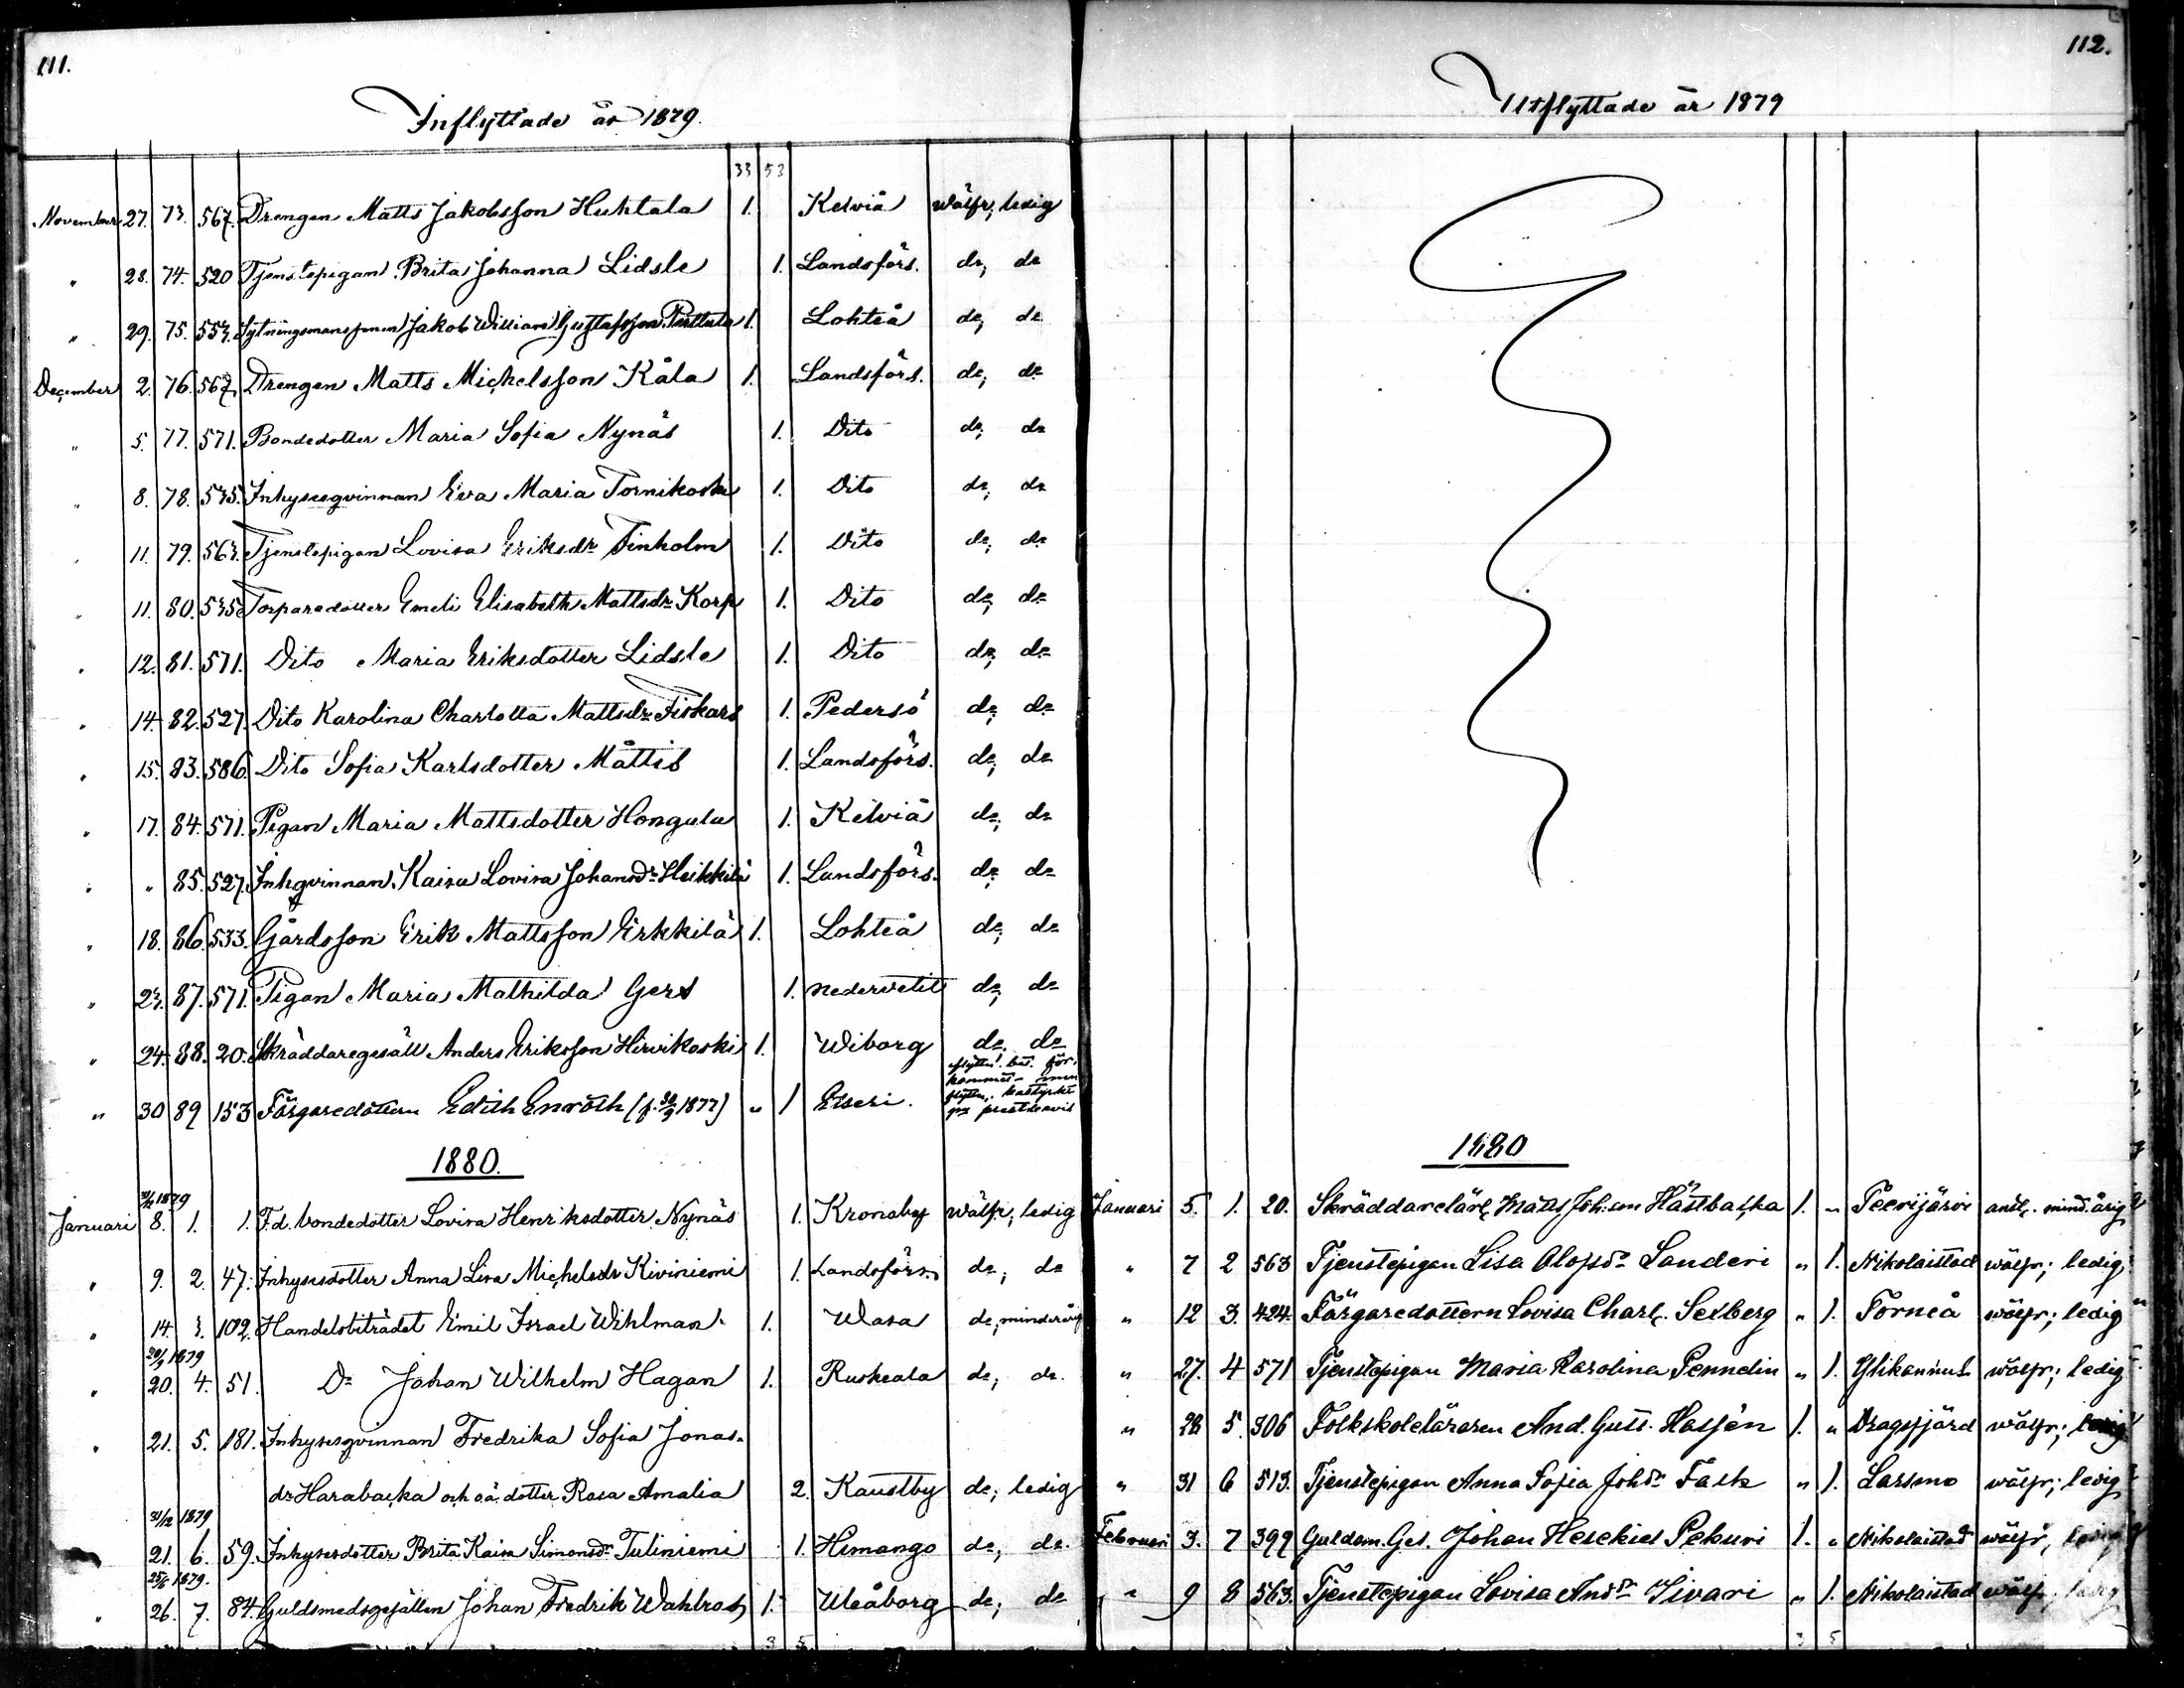 111.
Inflyttade år 1879.
33 53
November 27. 73. 567. Drengen Matts Jakobsson Huhtala 1. Kelviå wälfr; ledig
" 28. 74. 520 Tjenstepigan Brita Johanna Lidsle 1. Landsförs. do; do
" 29. 75. 553. Sytningsmanssonen Jakob William Gustafsson Perttula 1. Lohteå do; do
December 2. 76. 567. Drengen Matts Michelsson Kåla 1. Landsförs. do; do
" 5. 77. 571. Bondedotter Maria Sofia Nynäs 1. Dito do; do
" 8. 78. 535. Inhysesqvinnan Eva Maria Tornikoski 1. Dito do; do
" 11. 79. 563. Tjenstepigan Lovisa Eriksdr Finholm 1. Dito do; do
" 11. 80. 535 Torparedotter Emeli Elisabeth Mattsdr Korp 1. Dito do; do
" 12. 81. 571. Dito Maria Eriksdotter Lidsle 1. Dito do; do
" 14. 82. 527. Dito Karolina Charlotta Mattsdr Fiskars 1. Pedersö do; do
" 15. 83. 586. Dito Sofia Karlsdotter Måttis 1. Landsförs. do; do
" 17. 84. 571. Pigan Maria Mattsdotter Hongala 1. Kelviå do; do
" " 85. 527. Inhqvinnan Kaisa Lovisa Johansdr Heikkilä 1. Landsförs. do; do
" 18. 86. 533. Gårdsson Erik Mattsson Erkkilä 1. Lohteå do; do
" 23. 87. 571. Pigan Maria Mathilda Gers 1. Nedervetil do; do
" 24. 88. 20. Skräddaregesäll Anders Eriksson Hirvikoski 1. Wiborg do; do
" 30 89 153 Färgaredottern Edith Enroth (f. 30/9 1877) " 1 Etseri. flyttn. bet. för-
kommit
prestbevis
1880.
31/12 1879
Januari 8. 1. 1. F.d. bondedotter Lovisa Henriksdotter Nynäs 1. Kronoby wälfr; ledig
" 9. 2. 47. Inhysesdotter Anna Lisa Michelsdr Kiviniemi 1. Landsförs. do; do
" 14. 3. 102. Handelsbiträdet Emil Israel Wihlman. 1. Wasa do; minderårig
20/9 1879
" 20. 4. 51. Do Johan Wilhelm Hagan 1. Ruskeala do; do.
" 21. 5. 181. Inhysesqvinnan Fredrika Sofia Jonas-
dr Harabacka och oä. dotter Rosa Amalia 2. Kaustby do; ledig
31/12 1879
21. 6. 59. Inhysesdotter Brita Kaisa Simonsdr Tuliniemi 1. Himango do; do.
25/6 1879.
" 26. 7. 84. Guldsmedsgesällen Johan Fredrik Wahlroos 1. Uleåborg do; do
3 5
112.
Utflyttade år 1879
1880
Januari 5. 1. 20. Skräddarelärl. Matts Joh:son Hästbacka 1. " Peerijärvi anst. mind.årig
" 7 2 563 Tjenstepigan Lisa Olofsdr Sanderi " 1. Nikolaistad wälfr; ledig
" 12 3. 424. Färgaredottern Lovisa Charl. Sexberg " 1. Torneå wälfr; ledig
" 27. 4 571 Tjenstepigan Maria Karolina Penndin " 1. Ylikannus wälfr; ledig
" 28 5. 306 Folkskoleläraren And. Gust. Hassén 1. " Dragsfjärd wälfr; ledig
" 31 6 513. Tjenstepigan Anna Sofia Johdr Falk " 1. Larsmo wälfr; ledig
Februari 3. 7 399 Guldsm. Ges. Johan Hesekiel Pekuri 1. " Nikolaistad wälfr; ledig
" 9 8 563. Tjenstepigan Lovisa Andr Sivari " 1. Nikolaistad wälfr; ledig
3 5